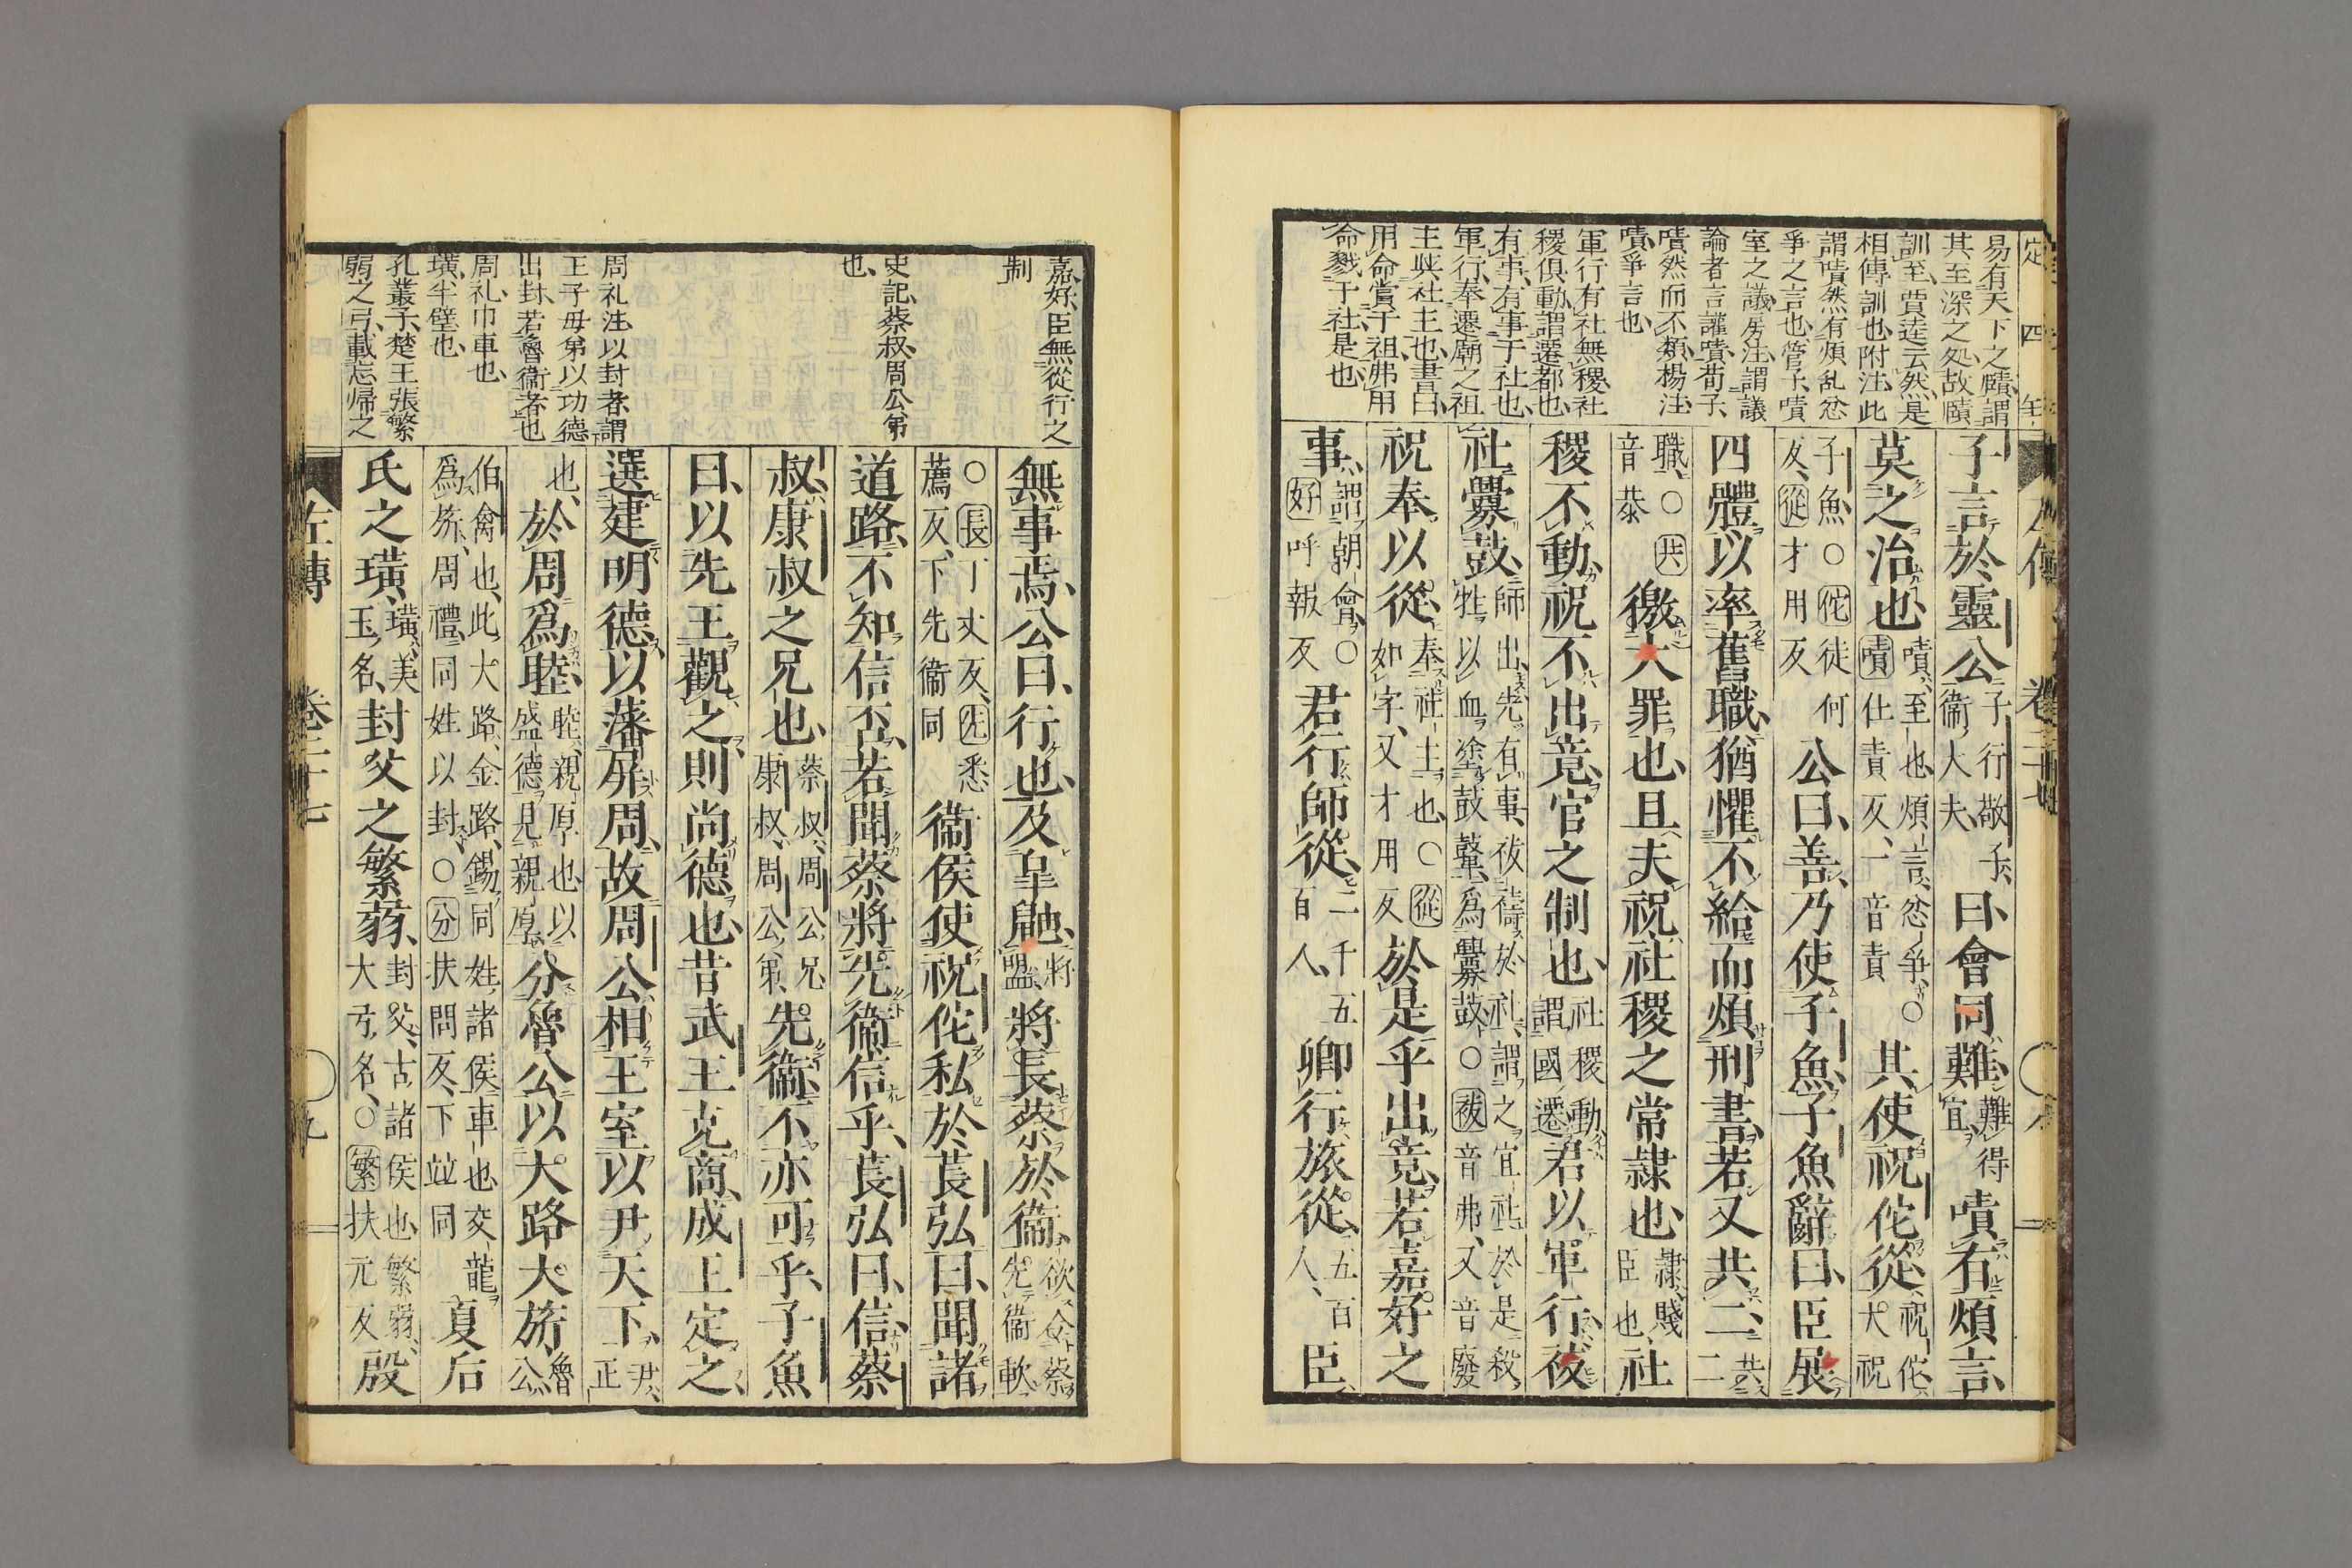 定四年
易有天下之賾、謂
其至深之処、故賾
訓至、賈逵云然、是
相傳訓也、附注、此
謂嘖然有煩乱忿
爭之言也、管子、嘖
室之議、房注、謂議
論者言讙嘖、荀子、
嘖然而不類、楊注、
嘖、爭言也、
軍行有社無稷、社
稷俱動、謂遷都也、
有事、有事于社也、
軍行、奉遷廟之祖
主與社主也、書曰、
用命賞于祖、弗用
命戮于社是也、
子言於靈公子行敬子、衛大夫、曰、會同難、難得宜、嘖有煩言、
莫之治也、嘖、至也、煩言、忿爭、○嘖仕責反、一音責其使祝佗從、祝佗、大祝
子魚○佗徒何反、從才用反公曰、善、乃使子魚、子魚辭曰、臣展
四體以率舊職、猶懼不給而煩刑書、若又共二、共二
職、○共音恭徼大罪也、且夫祝、社稷之常隷也、隷、賤臣也、社
稷不動、祝不出竟、官之制也、社稷動、謂國遷君以軍行、祓
社釁鼓、師出、先有事、祓禱於社、謂之宜社、於是殺牲、以血塗鼓鼙、爲釁鼓、○祓音弗、又音廢
祝奉以從、奉社主也、○從如字、又才用反於是乎出竟、若嘉好之
事、謂朝會、○好呼報反君行師從、二千五百人、卿行旅從、五百人、臣
嘉好、臣無從行之
制
史記、蔡叔、周公弟
也、
周礼注、以封者、謂
王子母弟以功德
出封、若魯衞者也
周礼、巾車也、
璜、半壁也、
孔叢子、楚王張繁
弱之弓、載忘帰之
無事焉、公曰、行也、及皐鼬、將盟、將長蔡於衞、欲令蔡先衞歃
○長丁丈反、先悉薦反、下先衞同衞侯使祝佗私於萇弘曰、聞諸
道路、不知信否、若聞蔡將先衞、信乎、萇弘曰、信、蔡
叔、康叔之兄也、蔡叔、周公兄康叔、周公弟、先衞、不亦可乎、子魚
曰、以先王觀之、則尚德也、昔武王克商、成王定之、
選建明德、以藩屏周、故周公相王室、以尹天下、尹、正
也、於周爲睦、睦、親厚也、以盛德見親厚、分魯公以大路大旂、魯公
伯禽也、此大路、金路、錫同姓諸侯車也、交龍爲旂、周禮、同姓以封、○分扶問反、下竝同夏后
氏之璜、璜、美玉名、封父之繁弱、封父、古諸侯也、繁弱、大弓名、○繁扶元反殷
左傳 卷二十七 九